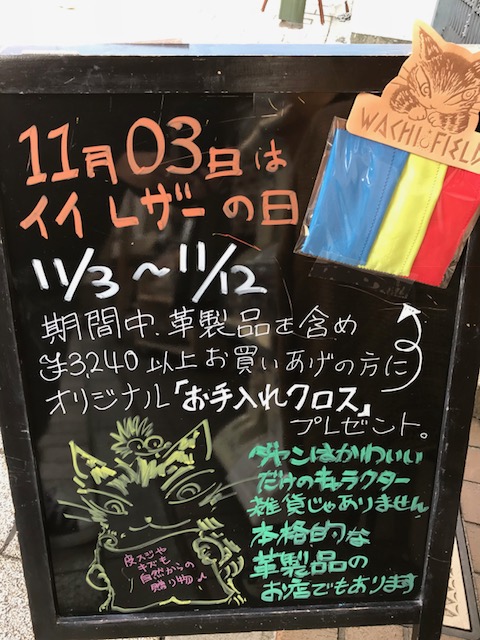 11月03日は
イイレザーの日
WACHIFIELD
11/3〜11/12
期間中、革製品を含め
¥3,240以上お買いあげの方に
オリジナル「お手入れクロス」
プレゼント。
ダヤンはかわいい
だけのキャラクター
雑貨じゃありません
本格的な
革製品の
お店でもあります
皮スジや
キズも
自然からの
贈り物